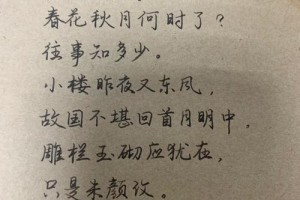 春花秋月何时了？
往事知多少。
小楼昨夜又东风，
故国不堪回首月明中，
雕栏玉砌应犹在，
只是朱颜改。